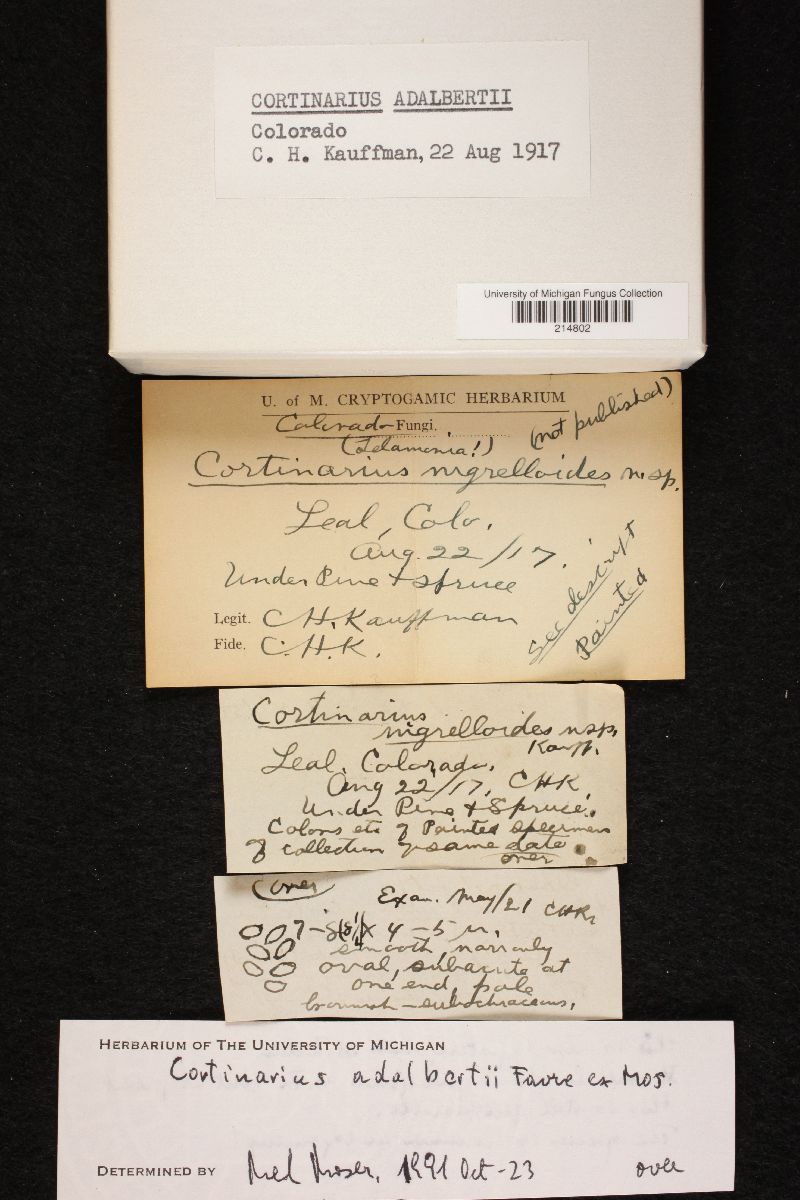 CORTINARIUS ADALBERTII
Colorado
C. H. Kauffman, 22 Aug 1917
University of Michigan Fungus Collection
214802
U. of M. CRYPTOGAMIC HERBARIUM
Colorado Fungi.
(not published)
(Telamonia!)
Cortinarius nigrelloides n.sp.
Leal, Colo.
Aug. 22/17.
Under Pine + Spruce
See descript
Painted
Legit. C.H. Kauffman
Fide. C.H.K.
Cortinarius
nigrelloides n.sp.
Kauff.
Leal, Colorado.
Aug 22/17, CHK.
Under Pine + Spruce.
Colors etc of Painted specimen
of collection of same date.
over
(over)
Exam. May/21 CHK
7-8(8½) x 4-5 µ,
smooth, narrowly
oval, subacute at
one end, pale
brownish-subochraceous.
HERBARIUM OF THE UNIVERSITY OF MICHIGAN
Cortinarius adalbertii Favre ex Mos.
DETERMINED BY Med Moser, 1991 Oct-23
over